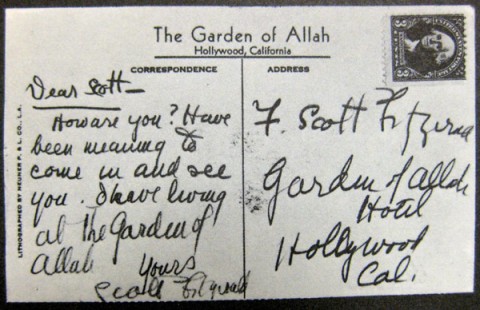 The Garden of Allah
Hollywood, California
CORRESPONDENCE
ADDRESS
LITHOGRAPHED BY NEUNER P. & L. CO., L.A.
Dear Scott —
How are you? Have
been meaning to
come in and see
you. I have living
at the Garden of
Allah
Yours
Scott Fitzgerald
F. Scott Fitzgerald
Garden of Allah
Hotel
Hollywood
Cal.
3 3